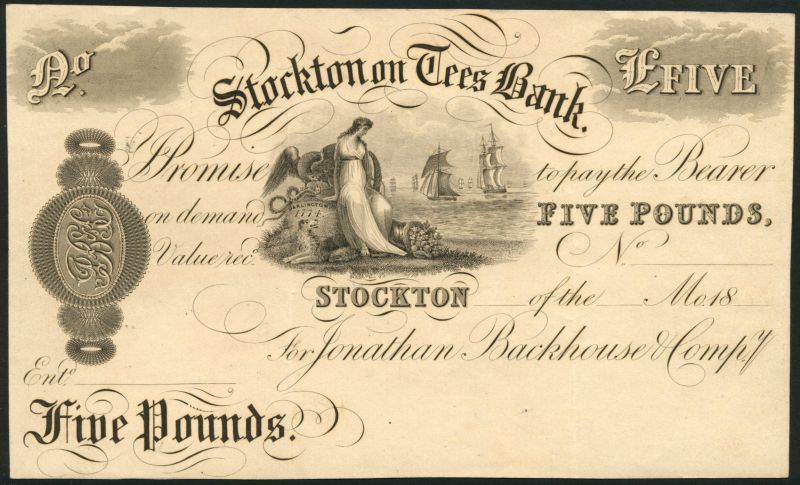 No.
£FIVE
Stockton on Tees Bank.
I Promise to pay the Bearer
on demand FIVE POUNDS,
Value rec.d No
DARLINGTON
1774
STOCKTON of the Mo. 18
For Jonathan Backhouse & Comp.y
Ent.d
Five Pounds.